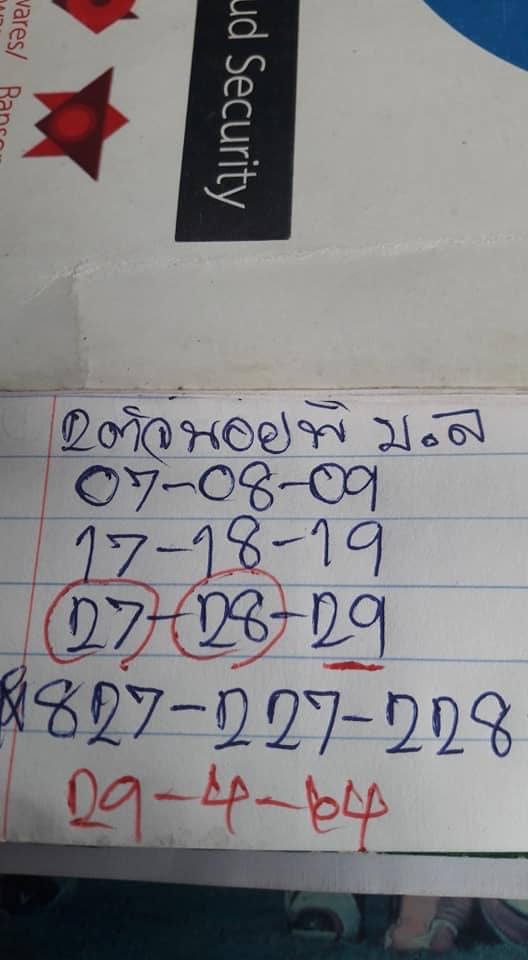 ud Security
wares/ Ranso
2ตัวหอยพี ม.ล
07-08-09
17-18-19
27-28-29
827-227-228
29-4-64